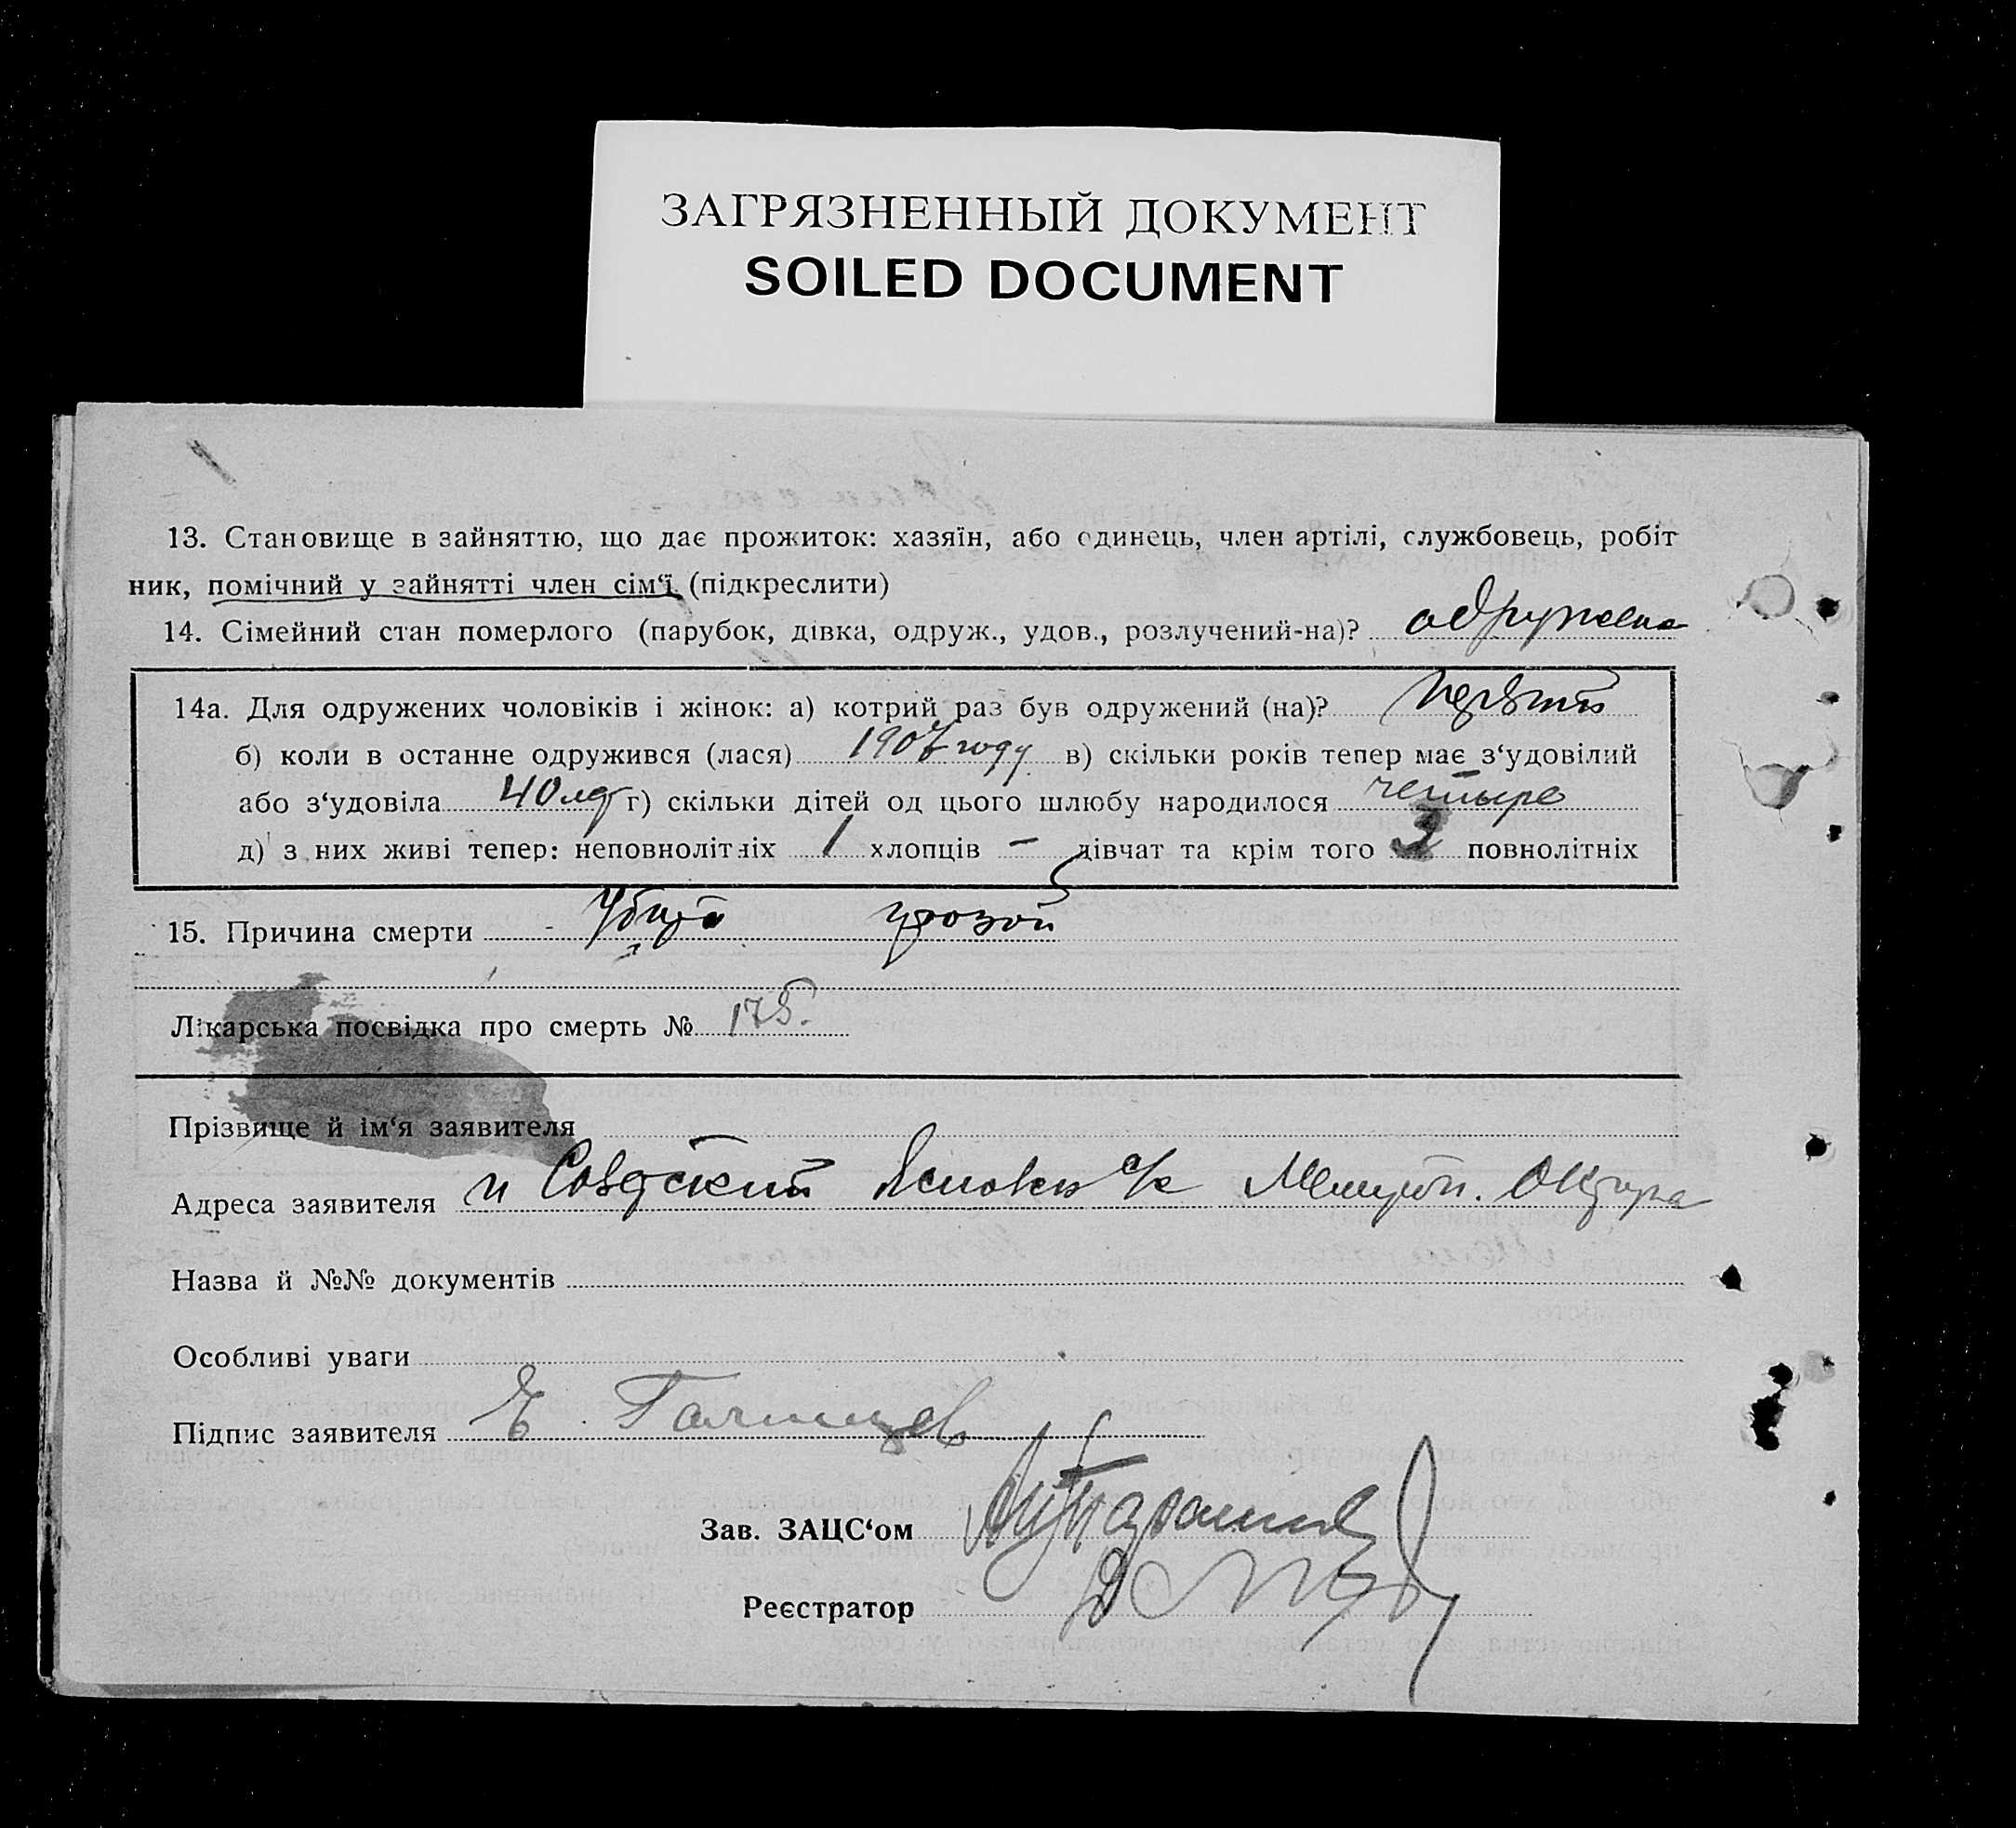 ЗАГРЯЗНЕННЫЙ ДОКУМЕНТ
SOILED DOCUMENT
13. Становище в зайняттю, що дає прожиток: хазяїн, або одинець, член артілі, службовець, робіт
ник, помічний у зайнятті член сім‘ї (підкреслити)
14. Сімейний стан померлого (парубок, дівка, одруж., удов., розлучений-на)? одружена
14а. Для одружених чоловіків і жінок: а) котрий раз був одружений (на)? первый
б) коли в останне одружився (лася) 1907 году в) скільки років тепер має з‘удовілий
або з‘удовіла 40 лет г) скільки дітей од цього шлюбу народилося четыре
д) з них живі тепер: неповнолітніх 1 хлопців — дівчат та крім того 3 повнолітніх
15. Причина смерти Убита грозой
Лікарська посвідка про смерть № 175.
Прізвище й ім‘я заявителя
Адреса заявителя п Советский с/к
Назва й №№ документів
Особливі уваги
Підпис заявителя Е. Галицев
Зав. ЗАЦС‘ом
Реєстратор